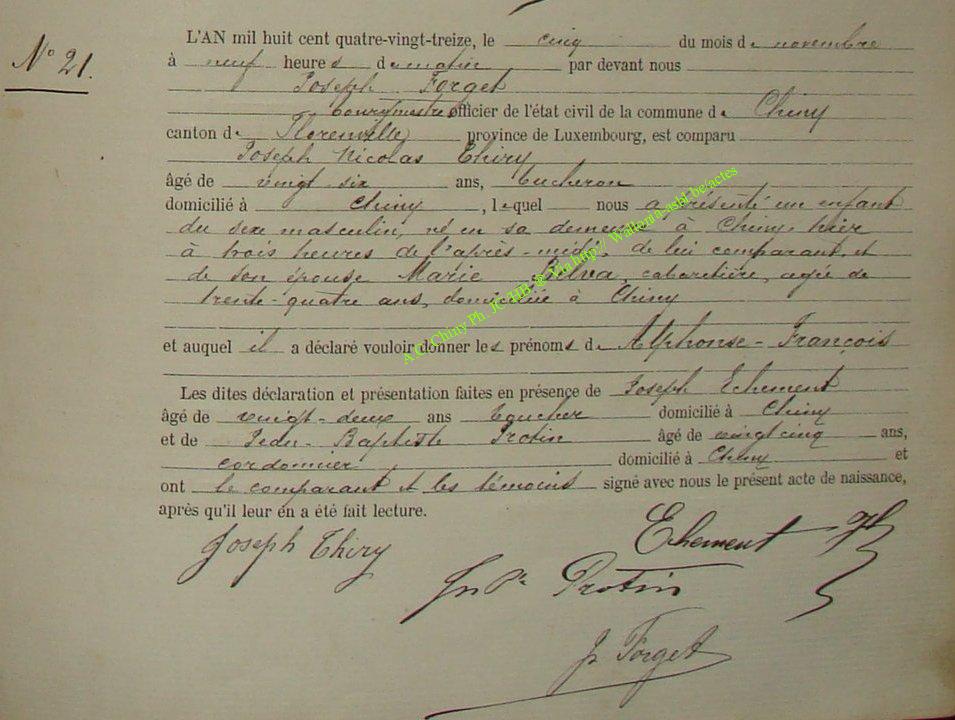 N° 21.
L'AN mil huit cent quatre-vingt-treize, le cinq du mois de novembre
à neuf heures de matin par devant nous
Joseph Forget
bourgmestre officier de l'état civil de la commune de Chiny
canton de Florenville province de Luxembourg, est comparu
Joseph Nicolas Thiry
âgé de vingt-six ans, bucheron
domicilié à Chiny, lequel nous a présenté un enfant
du sexe masculin, né en sa demeure à Chiny, hier
à trois heures de l'après-midi, de lui comparant et
de son épouse Marie cabaretière, agée de
trente-quatre ans, domiciliée à Chiny
et auquel il a déclaré vouloir donner les prénoms de Alphonse-François
Les dites déclaration et présentation faites en présence de Joseph Echement
âgé de vingt-deux ans boucher domicilié à Chiny
et de Jean-Baptiste Protin âgé de vingt cinq ans,
cordonnier domicilié à Chiny et
ont le comparant et les témoins signé avec nous le présent acte de naissance,
après qu'il leur en a été fait lecture.
Joseph Thiry
Echement Jh
Jn Bte Protin
J. Forget
A.C. Chiny Ph. JC HB @ Via http:// Walleria-asbl.be/actes